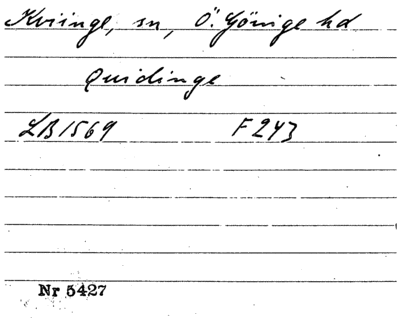 Kviinge, sn, Ö. Göinge hd
Quidinge
LB 1569 F 243
Nr 5427